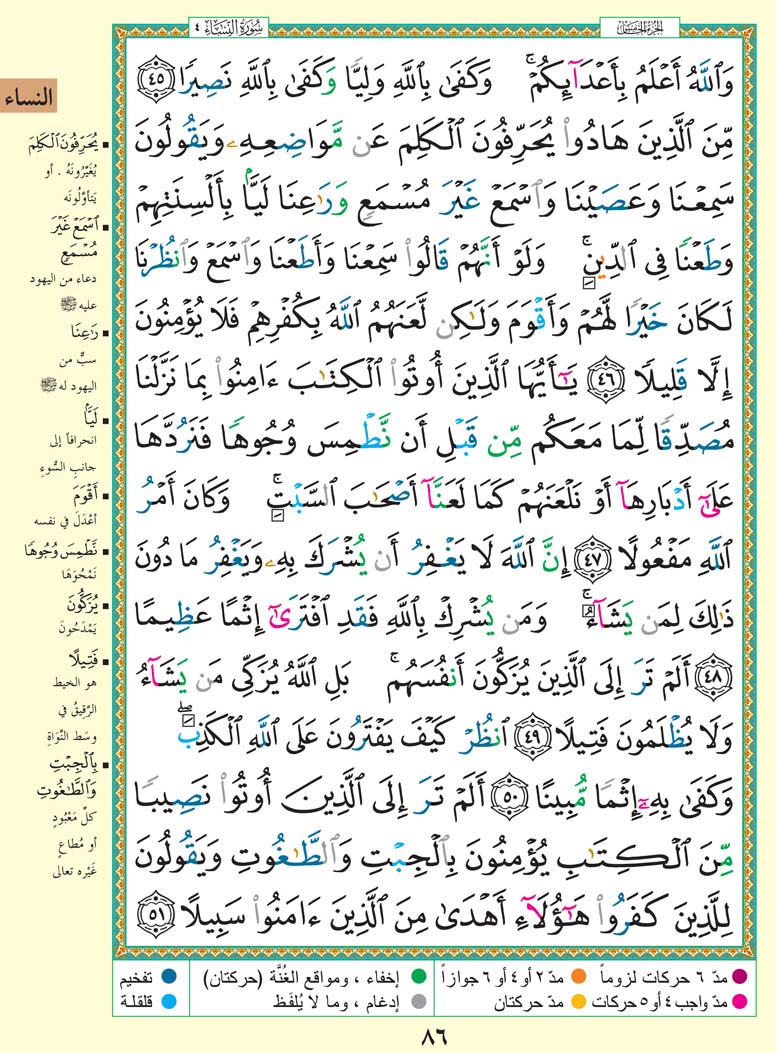 الجزء الخامس
سورة النساء ٤
وَٱللَّهُ أَعۡلَمُ بِأَعۡدَآئِكُمۡۚ وَكَفَىٰ بِٱللَّهِ وَلِيّٗا وَكَفَىٰ بِٱللَّهِ نَصِيرٗا ٤٥
مِّنَ ٱلَّذِينَ هَادُواْ يُحَرِّفُونَ ٱلۡكَلِمَ عَن مَّوَاضِعِهِۦ وَيَقُولُونَ
سَمِعۡنَا وَعَصَيۡنَا وَٱسۡمَعۡ غَيۡرَ مُسۡمَعٖ وَرَٰعِنَا لَيَّۢا بِأَلۡسِنَتِهِمۡ
وَطَعۡنٗا فِي ٱلدِّينِۚ وَلَوۡ أَنَّهُمۡ قَالُواْ سَمِعۡنَا وَأَطَعۡنَا وَٱسۡمَعۡ وَٱنظُرۡنَا
لَكَانَ خَيۡرٗا لَّهُمۡ وَأَقۡوَمَ وَلَٰكِن لَّعَنَهُمُ ٱللَّهُ بِكُفۡرِهِمۡ فَلَا يُؤۡمِنُونَ
إِلَّا قَلِيلٗا ٤٦ يَٰٓأَيُّهَا ٱلَّذِينَ أُوتُواْ ٱلۡكِتَٰبَ ءَامِنُواْ بِمَا نَزَّلۡنَا
مُصَدِّقٗا لِّمَا مَعَكُم مِّن قَبۡلِ أَن نَّطۡمِسَ وُجُوهٗا فَنَرُدَّهَا
عَلَىٰٓ أَدۡبَارِهَآ أَوۡ نَلۡعَنَهُمۡ كَمَا لَعَنَّآ أَصۡحَٰبَ ٱلسَّبۡتِۚ وَكَانَ أَمۡرُ
ٱللَّهِ مَفۡعُولًا ٤٧ إِنَّ ٱللَّهَ لَا يَغۡفِرُ أَن يُشۡرَكَ بِهِۦ وَيَغۡفِرُ مَا دُونَ
ذَٰلِكَ لِمَن يَشَآءُۚ وَمَن يُشۡرِكۡ بِٱللَّهِ فَقَدِ ٱفۡتَرَىٰٓ إِثۡمًا عَظِيمًا
٤٨ أَلَمۡ تَرَ إِلَى ٱلَّذِينَ يُزَكُّونَ أَنفُسَهُمۚ بَلِ ٱللَّهُ يُزَكِّي مَن يَشَآءُ
وَلَا يُظۡلَمُونَ فَتِيلًا ٤٩ ٱنظُرۡ كَيۡفَ يَفۡتَرُونَ عَلَى ٱللَّهِ ٱلۡكَذِبَۖ
وَكَفَىٰ بِهِۦٓ إِثۡمٗا مُّبِينًا ٥٠ أَلَمۡ تَرَ إِلَى ٱلَّذِينَ أُوتُواْ نَصِيبٗا
مِّنَ ٱلۡكِتَٰبِ يُؤۡمِنُونَ بِٱلۡجِبۡتِ وَٱلطَّٰغُوتِ وَيَقُولُونَ
لِلَّذِينَ كَفَرُواْ هَٰٓؤُلَآءِ أَهۡدَىٰ مِنَ ٱلَّذِينَ ءَامَنُواْ سَبِيلًا ٥١
النساء
يُحَرِّفُونَ ٱلۡكَلِمَ
يُغَيِّرُونَهُ . أو
يَتأوَّلُونَه
ٱسۡمَعۡ غَيۡرَ
مُسۡمَعٖ
دعاء من اليهود
عليه ﷺ
رَٰعِنَا
سبٌّ من
اليهود له ﷺ
لَيَّۢا
انحرافاً إلى
جانبِ السُّوءِ
أَقۡوَمَ
أعْدَلَ في نفسه
نَّطۡمِسَ وُجُوهٗا
نَمْحُوَهَا
يُزَكُّونَ
يَمْدَحُونَ
فَتِيلًا
هو الخيط
الرَّقِيقُ في
وسَط النَّوَاةِ
بِٱلۡجِبۡتِ
وَٱلطَّٰغُوتِ
كلِّ مَعْبُودٍ
أو مُطاعٍ
غَيْره تعالى
مدّ ٦ حركات لزوماً
مدّ ٢ أو ٤ أو ٦ جوازاً
إخفاء ، ومواقع الغُنَّة (حركتان)
تفخيم
مدّ واجب ٤ أو ٥ حركات
مدّ حركتان
إدغام ، وما لا يُلفَظ
قلقلة
٨٦